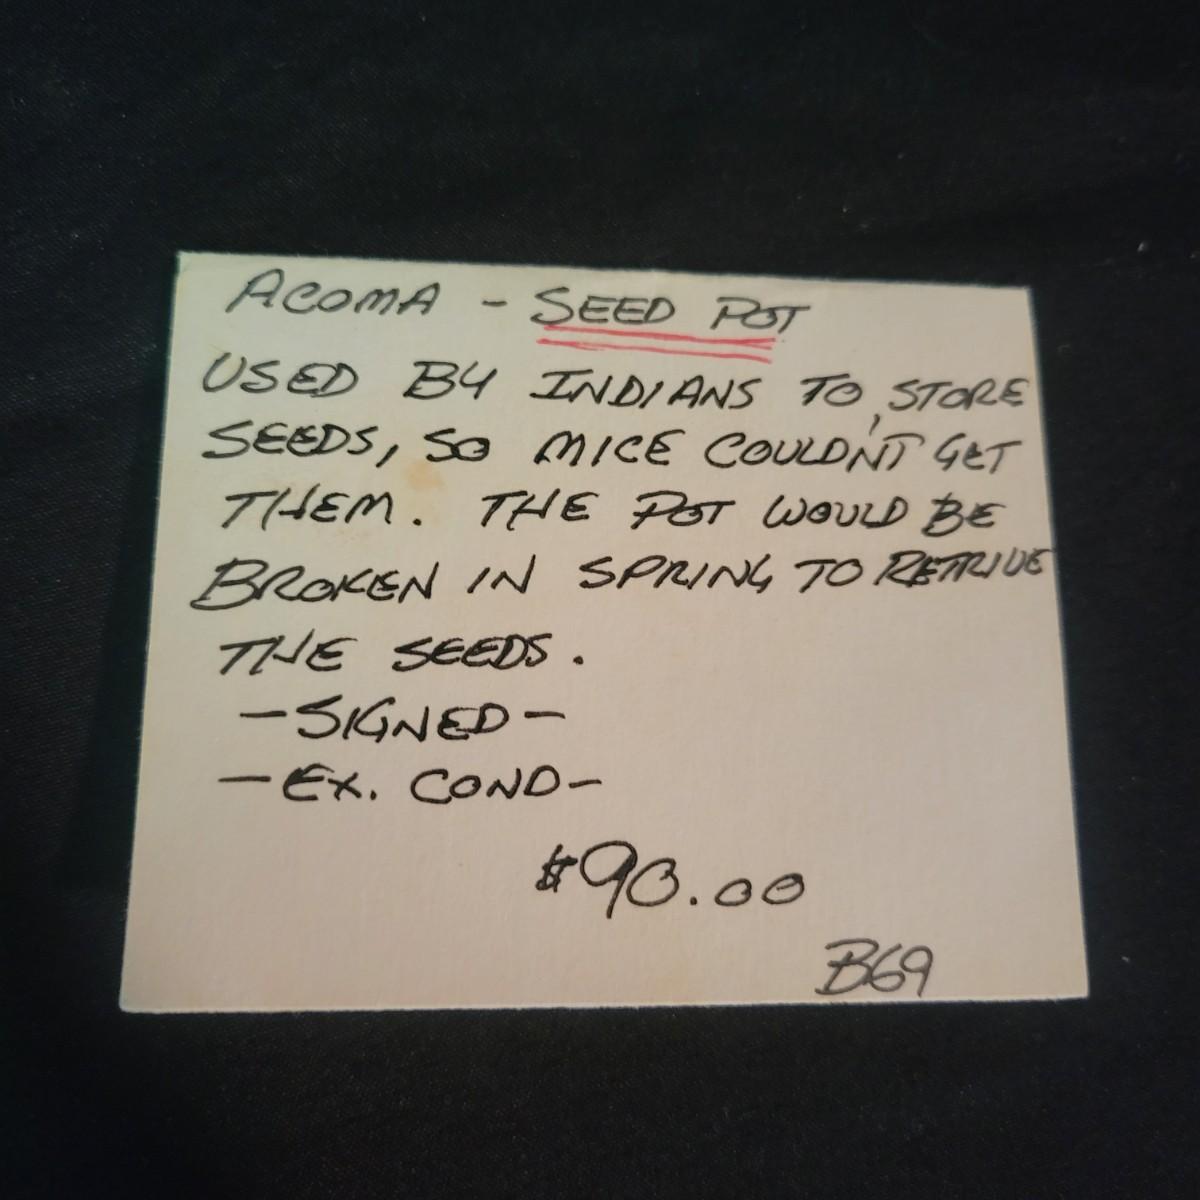 ACOMA - SEED POT
USED BY INDIANS TO STORE
SEEDS, SO MICE COULDN'T GET
THEM. THE POT WOULD BE
BROKEN IN SPRING TO RETRIVE
THE SEEDS.
- SIGNED -
- EX. COND -
$90.00
B69